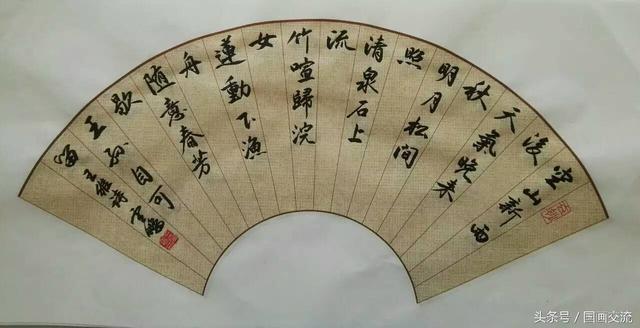 空山新雨
後
天氣晚来
秋
明月松间
照
清泉石上
流
竹喧歸浣
女
蓮動下漁
舟
随意春芳
歇
王孙自可
留
王维诗
头条号／国画交流